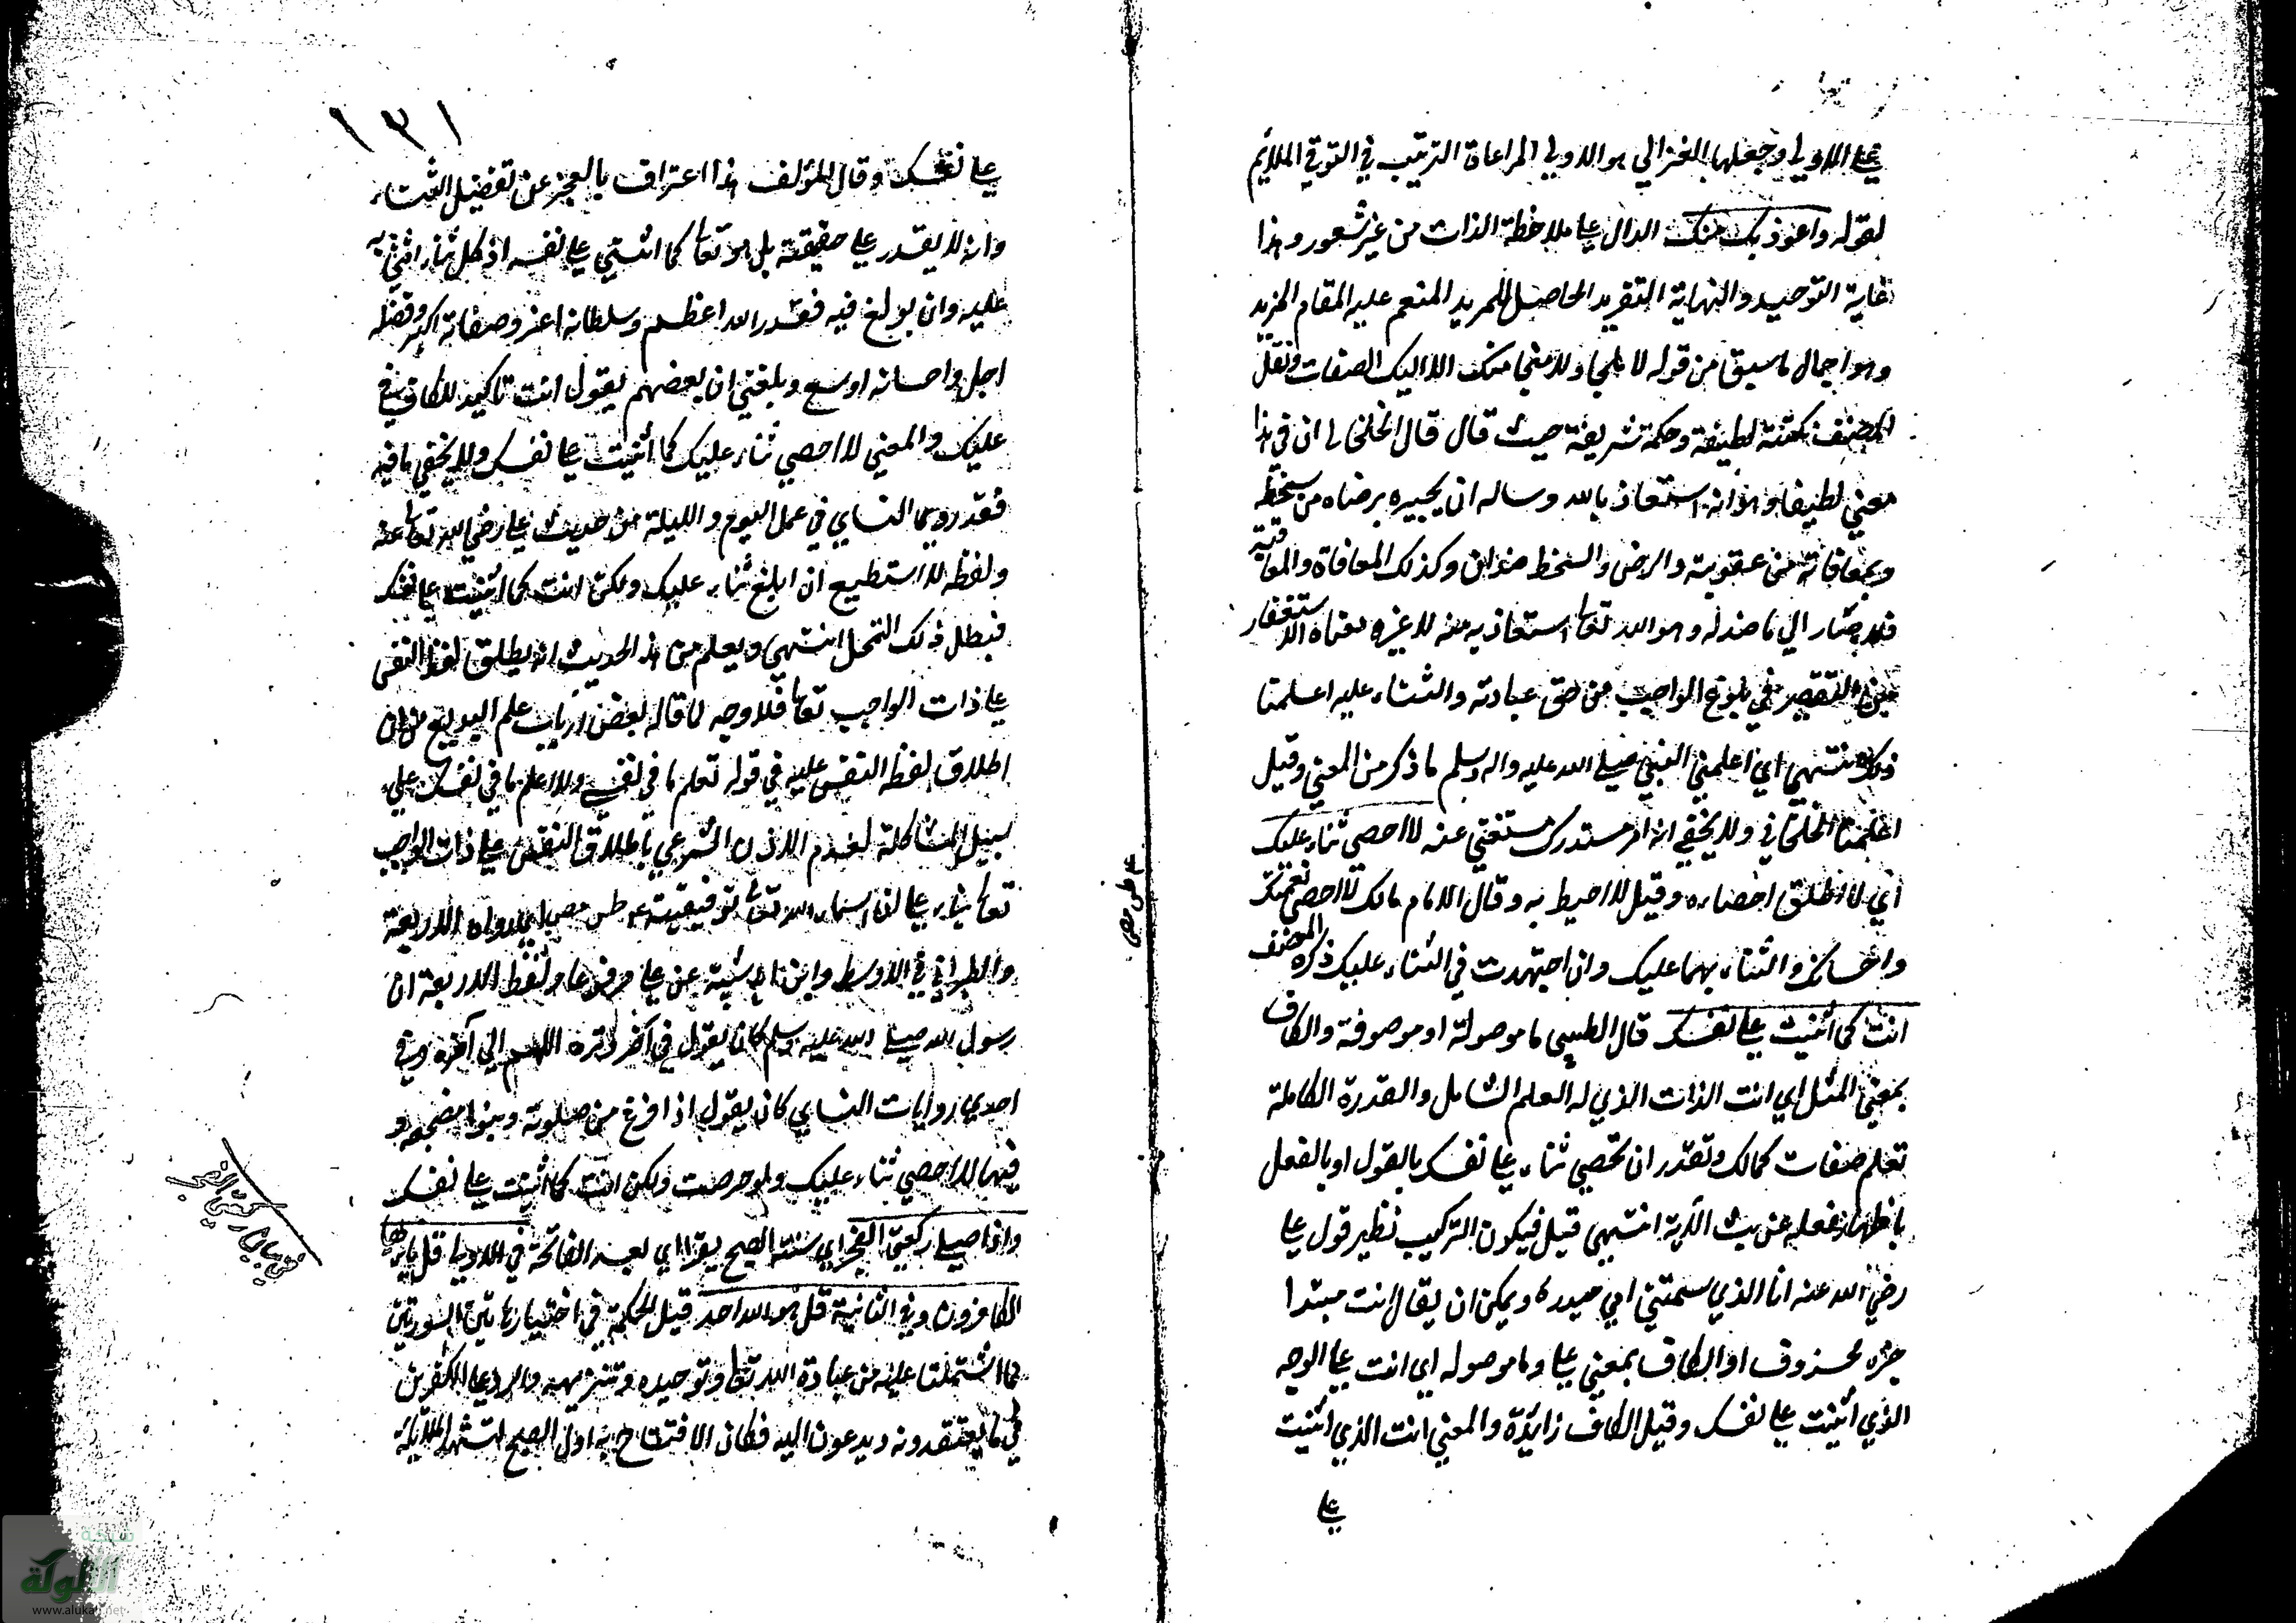 علي الاولي وجعلها الغزالي هو الاولي لمراعاة الترتيب في الترقي الملايم
لقوله واعوذ بك منك الدال علي ملاحظة الذات من غير شعور وهذا
غاية التوحيد والنهاية التفريد الحاصل للمريد المنعم عليه المقام المزيد
وهو اجمال ما سبق من قوله لا ملجا ولا منجا منك الا اليك الصفات ونقل
المصنف نكتة لطيفة وحكمة شريفة حيث قال قال الخطابي ان في هذا
معني لطيفا وهو انه استعاذ بالله وساله ان يجيره برضاه من سخطه
وبمعافاته من عقوبته والرضي والسخط ضدان وكذلك المعافاة والمعاقبة
فلما صار الي ما ضد له وهو الله تعا استعاذ به منه لا غير معناه الاستغفار
من التقصير في بلوغ الواجب من حق عبادته والثناء عليه اعلمنا
ذلك انتهي اي اعلمني النبي صلي الله عليه واله وسلم ما ذكر من المعني وقيل
اعلمنا الخطابي ولا يخفي انه امر مستدرك مستغني عنه لا احصي ثناء عليك
اي لا اطيق احصاءه وقيل لا احيط به وقال الامام مالك لا احصي نعمتك
واحسانك والثناء بهما عليك وان اجتهدت في الثناء عليك ذكره المصنف
انت كما اثنيت علي نفسك قال الطيبي ما موصولة او موصوفة والكاف
بمعني المثل اي انت الذات الذي له العلم الشامل والقدرة الكاملة
تعلم صفات كمالك وتقدر ان تحصي ثناء علي نفسك بالقول او بالفعل
باظهار فعله عن بث الآية انتهي قيل فيكون التركيب نظير قول علي
رضي الله عنه انا الذي سمتني امي حيدره ويمكن ان يقال انت مبتدا
خبره محذوف او الكاف بمعني علي وما موصوله اي انت علي الوجه
الذي اثنيت علي نفسك وقيل الكاف زايدة والمعني انت الذي اثنيت
علي
١٣١
علي نفسك وقال المؤلف هذا اعتراف بالعجز عن تفضيل الثناء
وانه لا يقدر علي حقيقته بل هو تعا كما اثني علي نفسه اذ كل ثناء اثني به
عليه وان بولغ فيه فقدر الله اعظم وسلطانه اعز وصفاته اكبر وفضله
اجل واحسانه اوسع وبلغني ان بعضهم يقول انت تاكيد للكاف في
عليك والمعني لا احصي ثناء عليك كما اثنيت علي نفسك ولا يخفي ما فيه
فقد روي النساي في عمل اليوم والليلة من حديث علي رضي الله تعا عنه
ولفظه لا استطيع ان ابلغ ثناء عليك ولكن انت كما اثنيت علي نفسك
فبطل ذلك التمحل انتهي ويعلم من هذا الحديث انه يطلق لفظ النفس
علي ذات الواجب تعا فلا وجه لما قاله بعض ارباب علم البديع من ان
اطلاق لفظ النفس عليه في قوله تعلم ما في نفسي ولا اعلم ما في نفسك علي
سبيل المشاكلة لعدم الاذن الشرعي باطلاق النفس علي ذات الواجب
تعا بناء علي ان اسماء الله تعا توقيفية عه طس مص اي رواه الاربعة
والطبراني في الاوسط وابن ابي شيبة عن علي مرفوعا ولفظ الاربعة ان
رسول الله صلي الله عليه وسلم كان يقول في آخر وتره اللهم الي آخره وفي
احدي روايات النساي كان يقول اذا فرغ من صلوته وتبوا مضجعه و
فيها لا احصي ثناء عليك ولو حرصت ولكن انت كما اثنيت علي نفسك
واذا صلي ركعتي الفجر اي سنة الصبح يقرا اي بعد الفاتحة في الاولي قل يا ايها
الكافرون وفي الثانية قل هو الله احد قيل الحكمة في اختيارهاتين السورتين
لما اشتملتا عليه من عبادة الله تعا وتوحيده وتنزيهه والرد علي الكفرين
في ما يعتقدونه ويدعون اليه فكان الافتتاح به اول الصبح لتشهد الملايكة
عه طس مص
شبكة
الألوكة
www.alukah.net